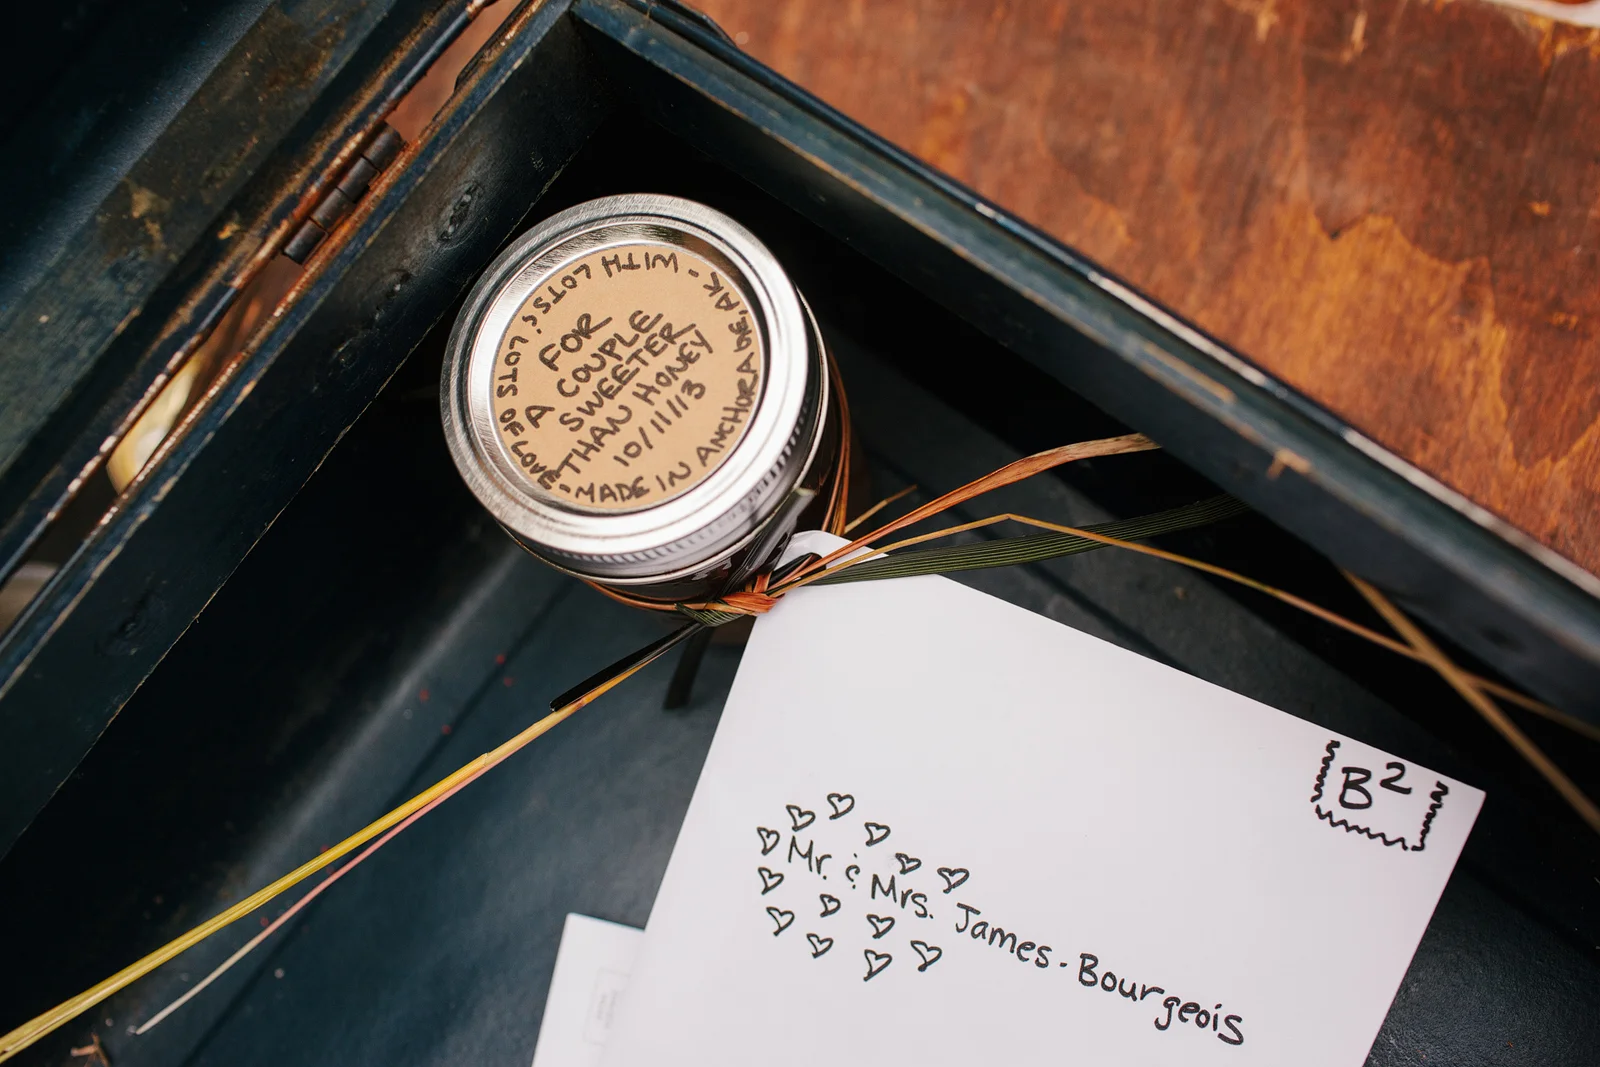 FOR
A COUPLE
SWEETER
THAN HONEY
10/11/13
- WITH LOTS & LOTS OF LOVE - MADE IN ANCHORAGE, AK
B²
Mr. & Mrs. James-Bourgeois